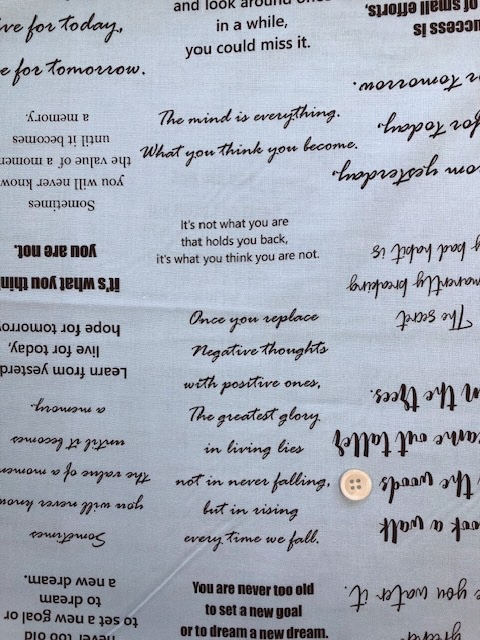 and look around
in a while,
you could miss it.
The mind is everything.
What you think you become.
It's not what you are
that holds you back,
it's what you think you are not.
Once you replace
Negative thoughts
with positive ones,
The greatest glory
in living lies
not in never falling,
but in rising
every time we fall.
You are never too old
to set a new goal
or to dream a new dream.
for today,
for tomorrow.
never too old
to set a new goal or
to dream
a new dream.
Sometimes
you will never know
the value of a moment
until it becomes
a memory.
Learn from
live for today,
hope for
it's what you think
you are not.
Sometimes
you will never know
the value of a
until it becomes
a memory.
you water it.
a walk
the woods
came out taller
the trees.
The secret
breaking
bad habit is
yesterday,
for today,
tomorrow.
is
of small efforts,